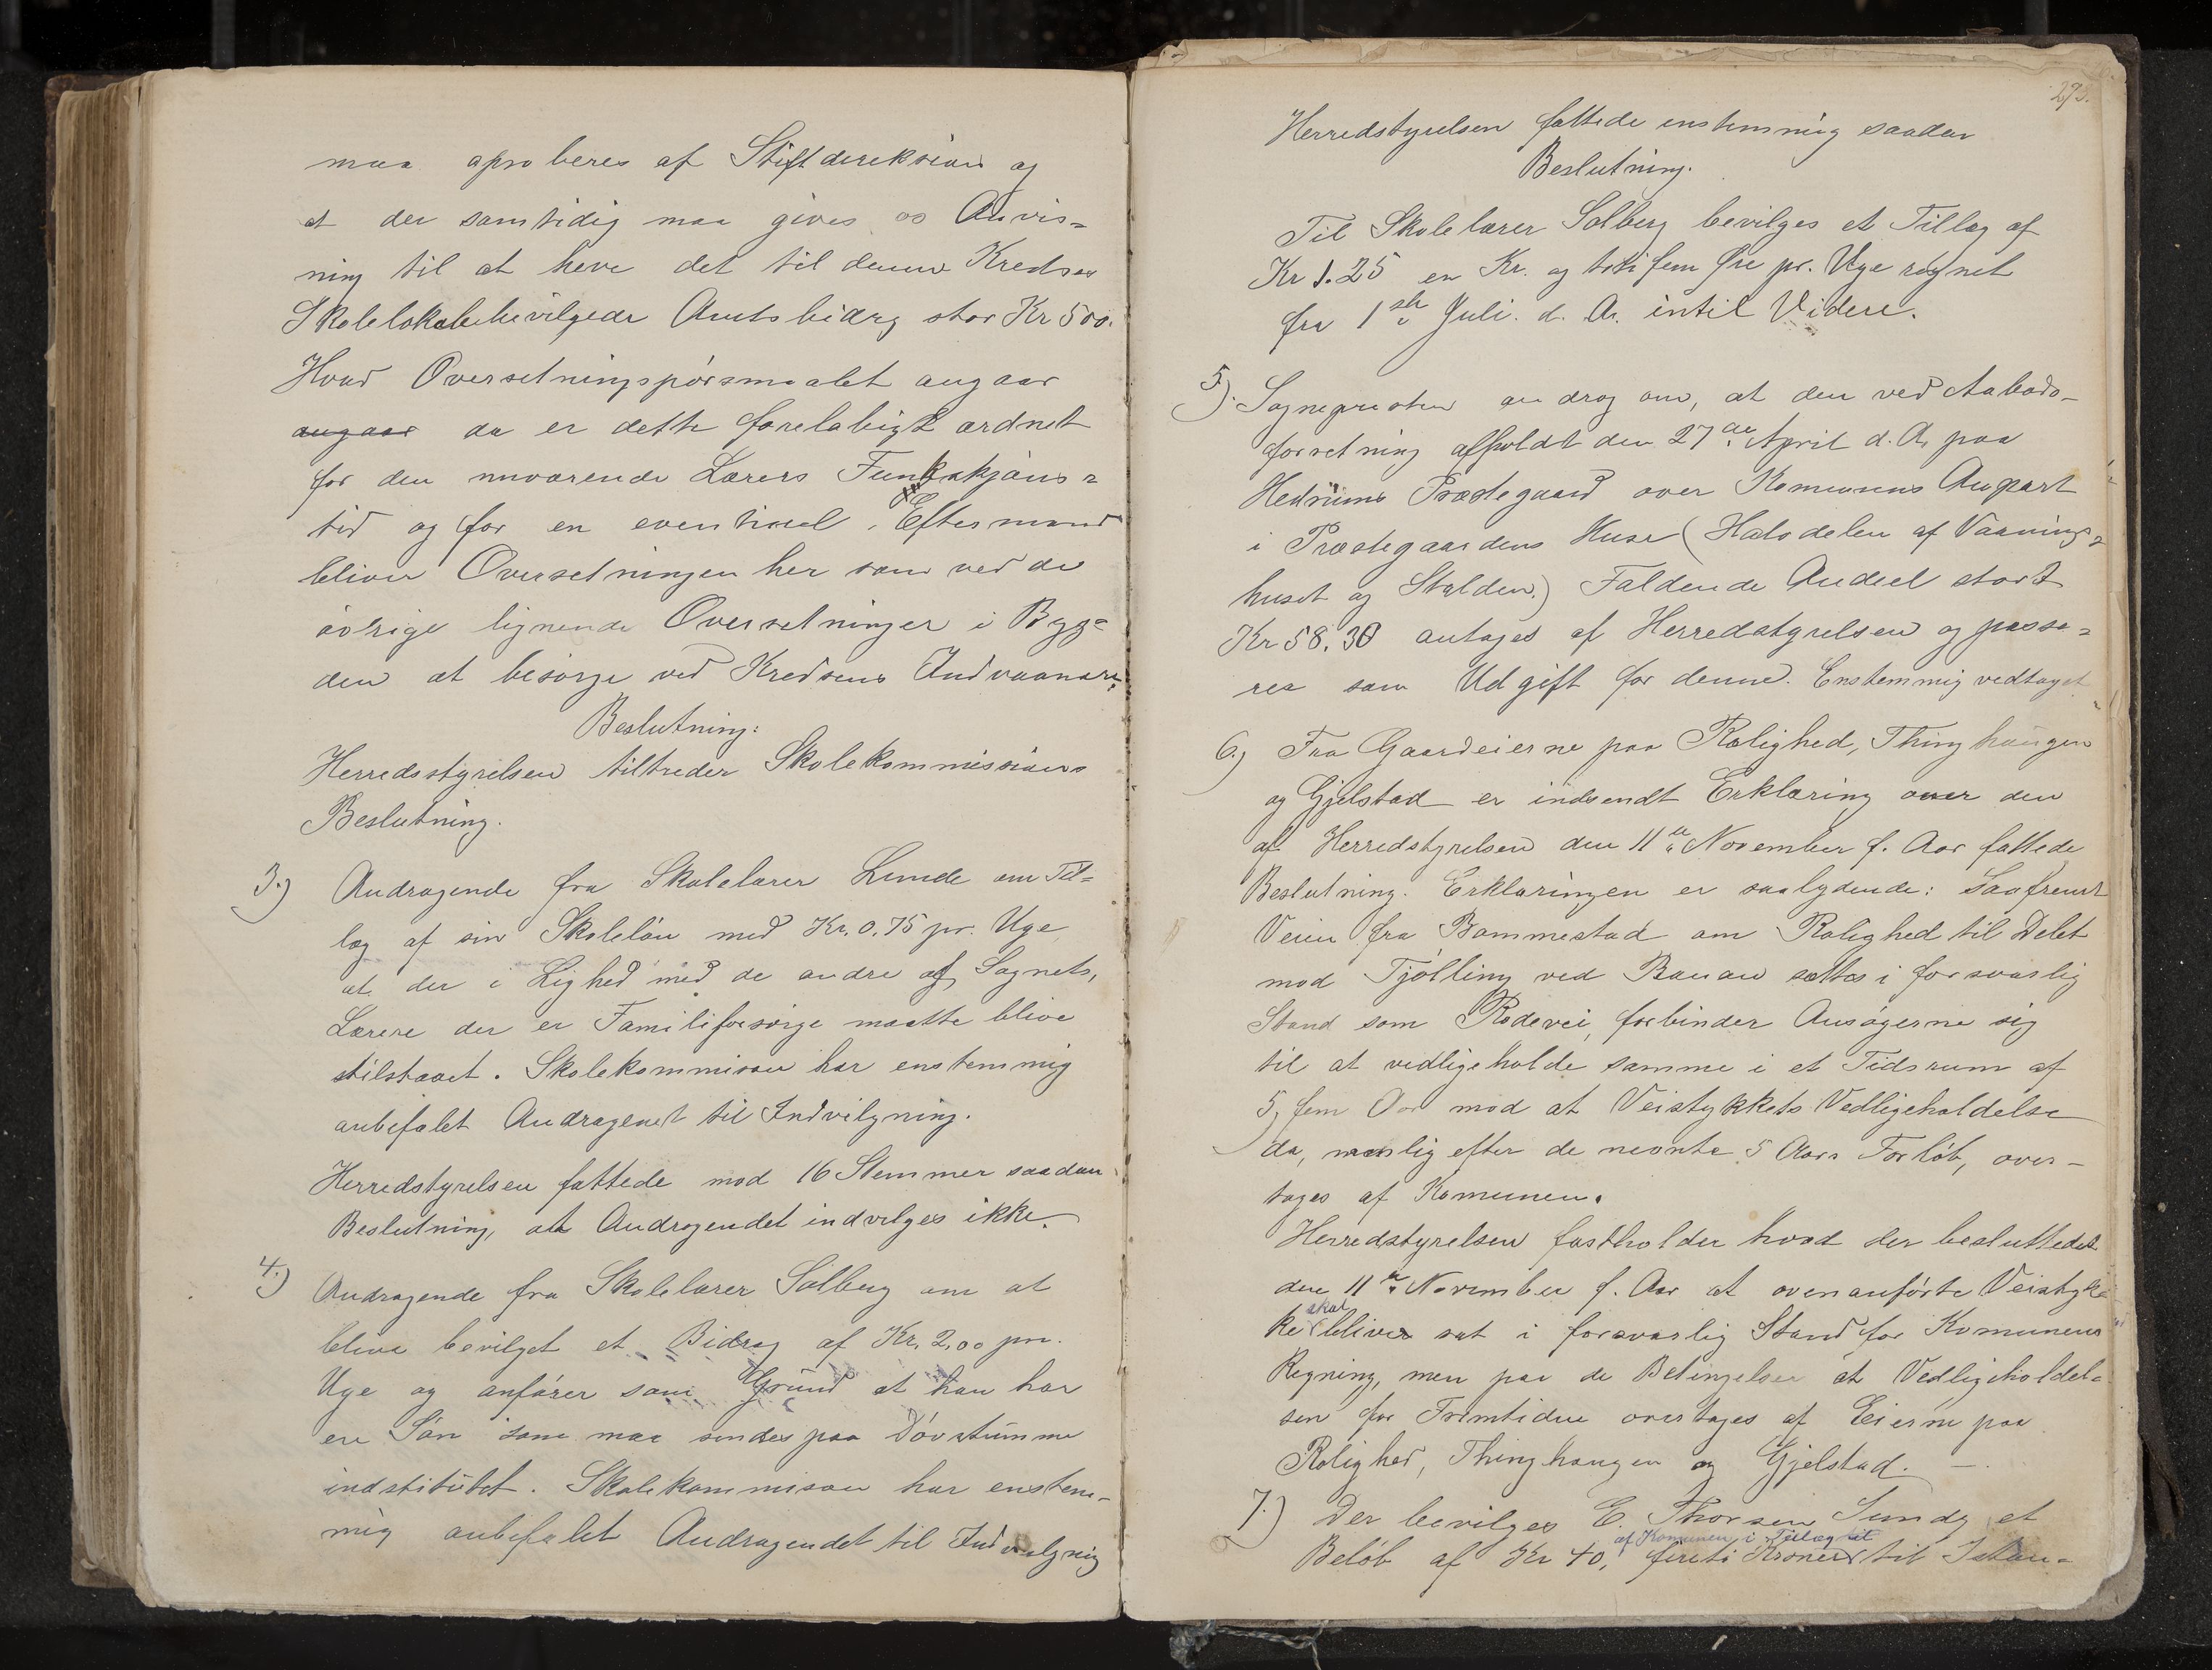 maa aproberes af Stiftdireksion og
at der samtidig maa gives os Anvis=
ning til at heve det til denne Kredses
Skolelokale bevilgede Amtsbidrag stor Kr 500.
Hvad Oversetningspörsmaalet angaar
angaar da er dette forelabigt ordnet
for den nuværende Lærers Funkskjöns=
tid og for en eventuel Eftermand
bliver Oversetningen her som ved de
övrige lignende Oversetninger i Byg=
den at besörge ved Kredsens Indvaanere.
Beslutning:
Herredsstyrelsen tiltreder Skolekommissions
Beslutning.
3.) Andragende fra Skolelærer Lunde om Til=
læg af sin Skolelön med Kr. 0.75 pr. Uge
at der i Lighed med de andre af Sognets,
Lærere der er Familiforsörge maatte blive
tilstaaet. Skolekommison har enstemmig
anbefalet Andragenet til Indvilgning.
Herredstyrelsen fattede mod 16 Stemmer saadan
Beslutning, at Andragendet indvilges ikke.
4.) Andragende fra Skolelærer Solberg om at
blive bevilget et Bidrag af Kr. 2.00 pr.
Uge og anförer som Grund at han har
en Sön som maa sendes paa Dövstumme
indstitutet. Skolekommison har enstem-
mig anbefalet Andragendet til Indvilgnig
293.
Herredstyrelsen fattede enstemmig saadan
Beslutning.
Til Skolelærer Solberg bevilges et Tillæg af
Kr 1.25 en Kr. og toti fem Øre pr. Uge regnet
fra 1ste Juli. d. A. intil Videre.
5.) Sognepresten androg om, at den ved Aabods-
forretning afholdt den 27de April d. A. paa
Hedrums Præstegaard over Komunens Anpart
i Præstegaardens Huse (Halvdelen af Vaanings=
huset og Stalden.) Faldende Andeel stort
Kr 58.30 antages af Herredstyrelsen og passe=
res som Udgift for denne. Enstemmig vedtaget
6.) Fra Gaardeierne paa Rolighed, Thinghaugen
og Gjelstad er indsendt Erklæring over den
af Herredstyrelsen den 11te November f. Aar fattede
Beslutning. Erklæringen er saalydende: Saafremt
Veien fra Bommestad om Rolighed til Delet
mod Tjölling ved Bauan sættes i forsvarlig
Stand som Rodevei, forbinder Ansögerne sig
til at vedligeholde samme i et Tidsrum af
5, fem Aar mod at Veistykkets Vedligeholdelse
da, nemlig efter de nevnte 5 Aars Forlöb, over-
tages af Komunen.
Herredstyrelsen fastholder hvad der besluttedes
den 11te November f. Aar at ovenanförte Veistyk=
ke skal bliver sat i forsvarlig Stand for Komunens
Regning, men paa de Betingelser at Vedligeholdel=
sen for Fremtiden overtages af Eierne paa
Rolighed, Thinghaugen og Gjelstad. —
7.) Der bevilges E. Thorsen Sundy et
af Komunen i Tillæg til
Belöb af Kr 40, fireti Kroner til Istan=